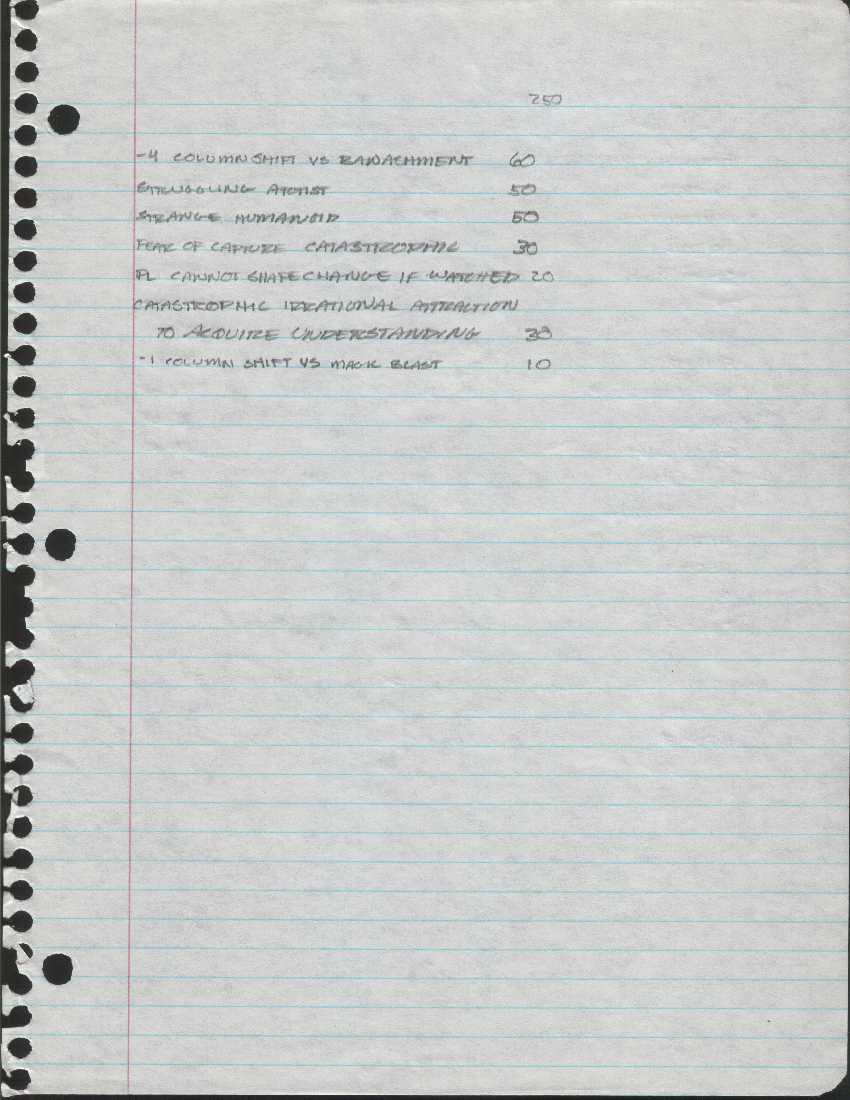 250
-4 COLUMN SHIFT VS BANACHMENT 60
STRUGGLING ARTIST 50
STRANGE HUMANOID 50
FEAR OF CAPTURE CATASTROPHIC 30
PL CANNOT SHAPECHANGE IF WATCHED 20
CATASTROPHIC IRRATIONAL ATTRACTION
TO ACQUIRE UNDERSTANDING 30
-1 COLUMN SHIFT VS MAGIC BLAST 10